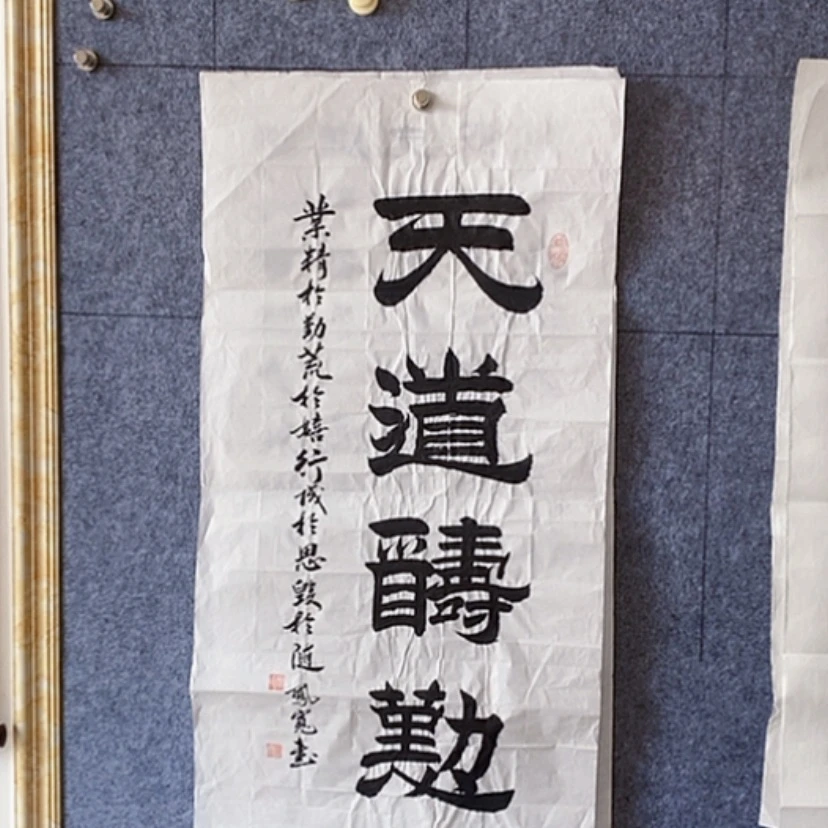 天道醻勤
業精於勤荒於嬉行成於思毀於随
鳳寬書